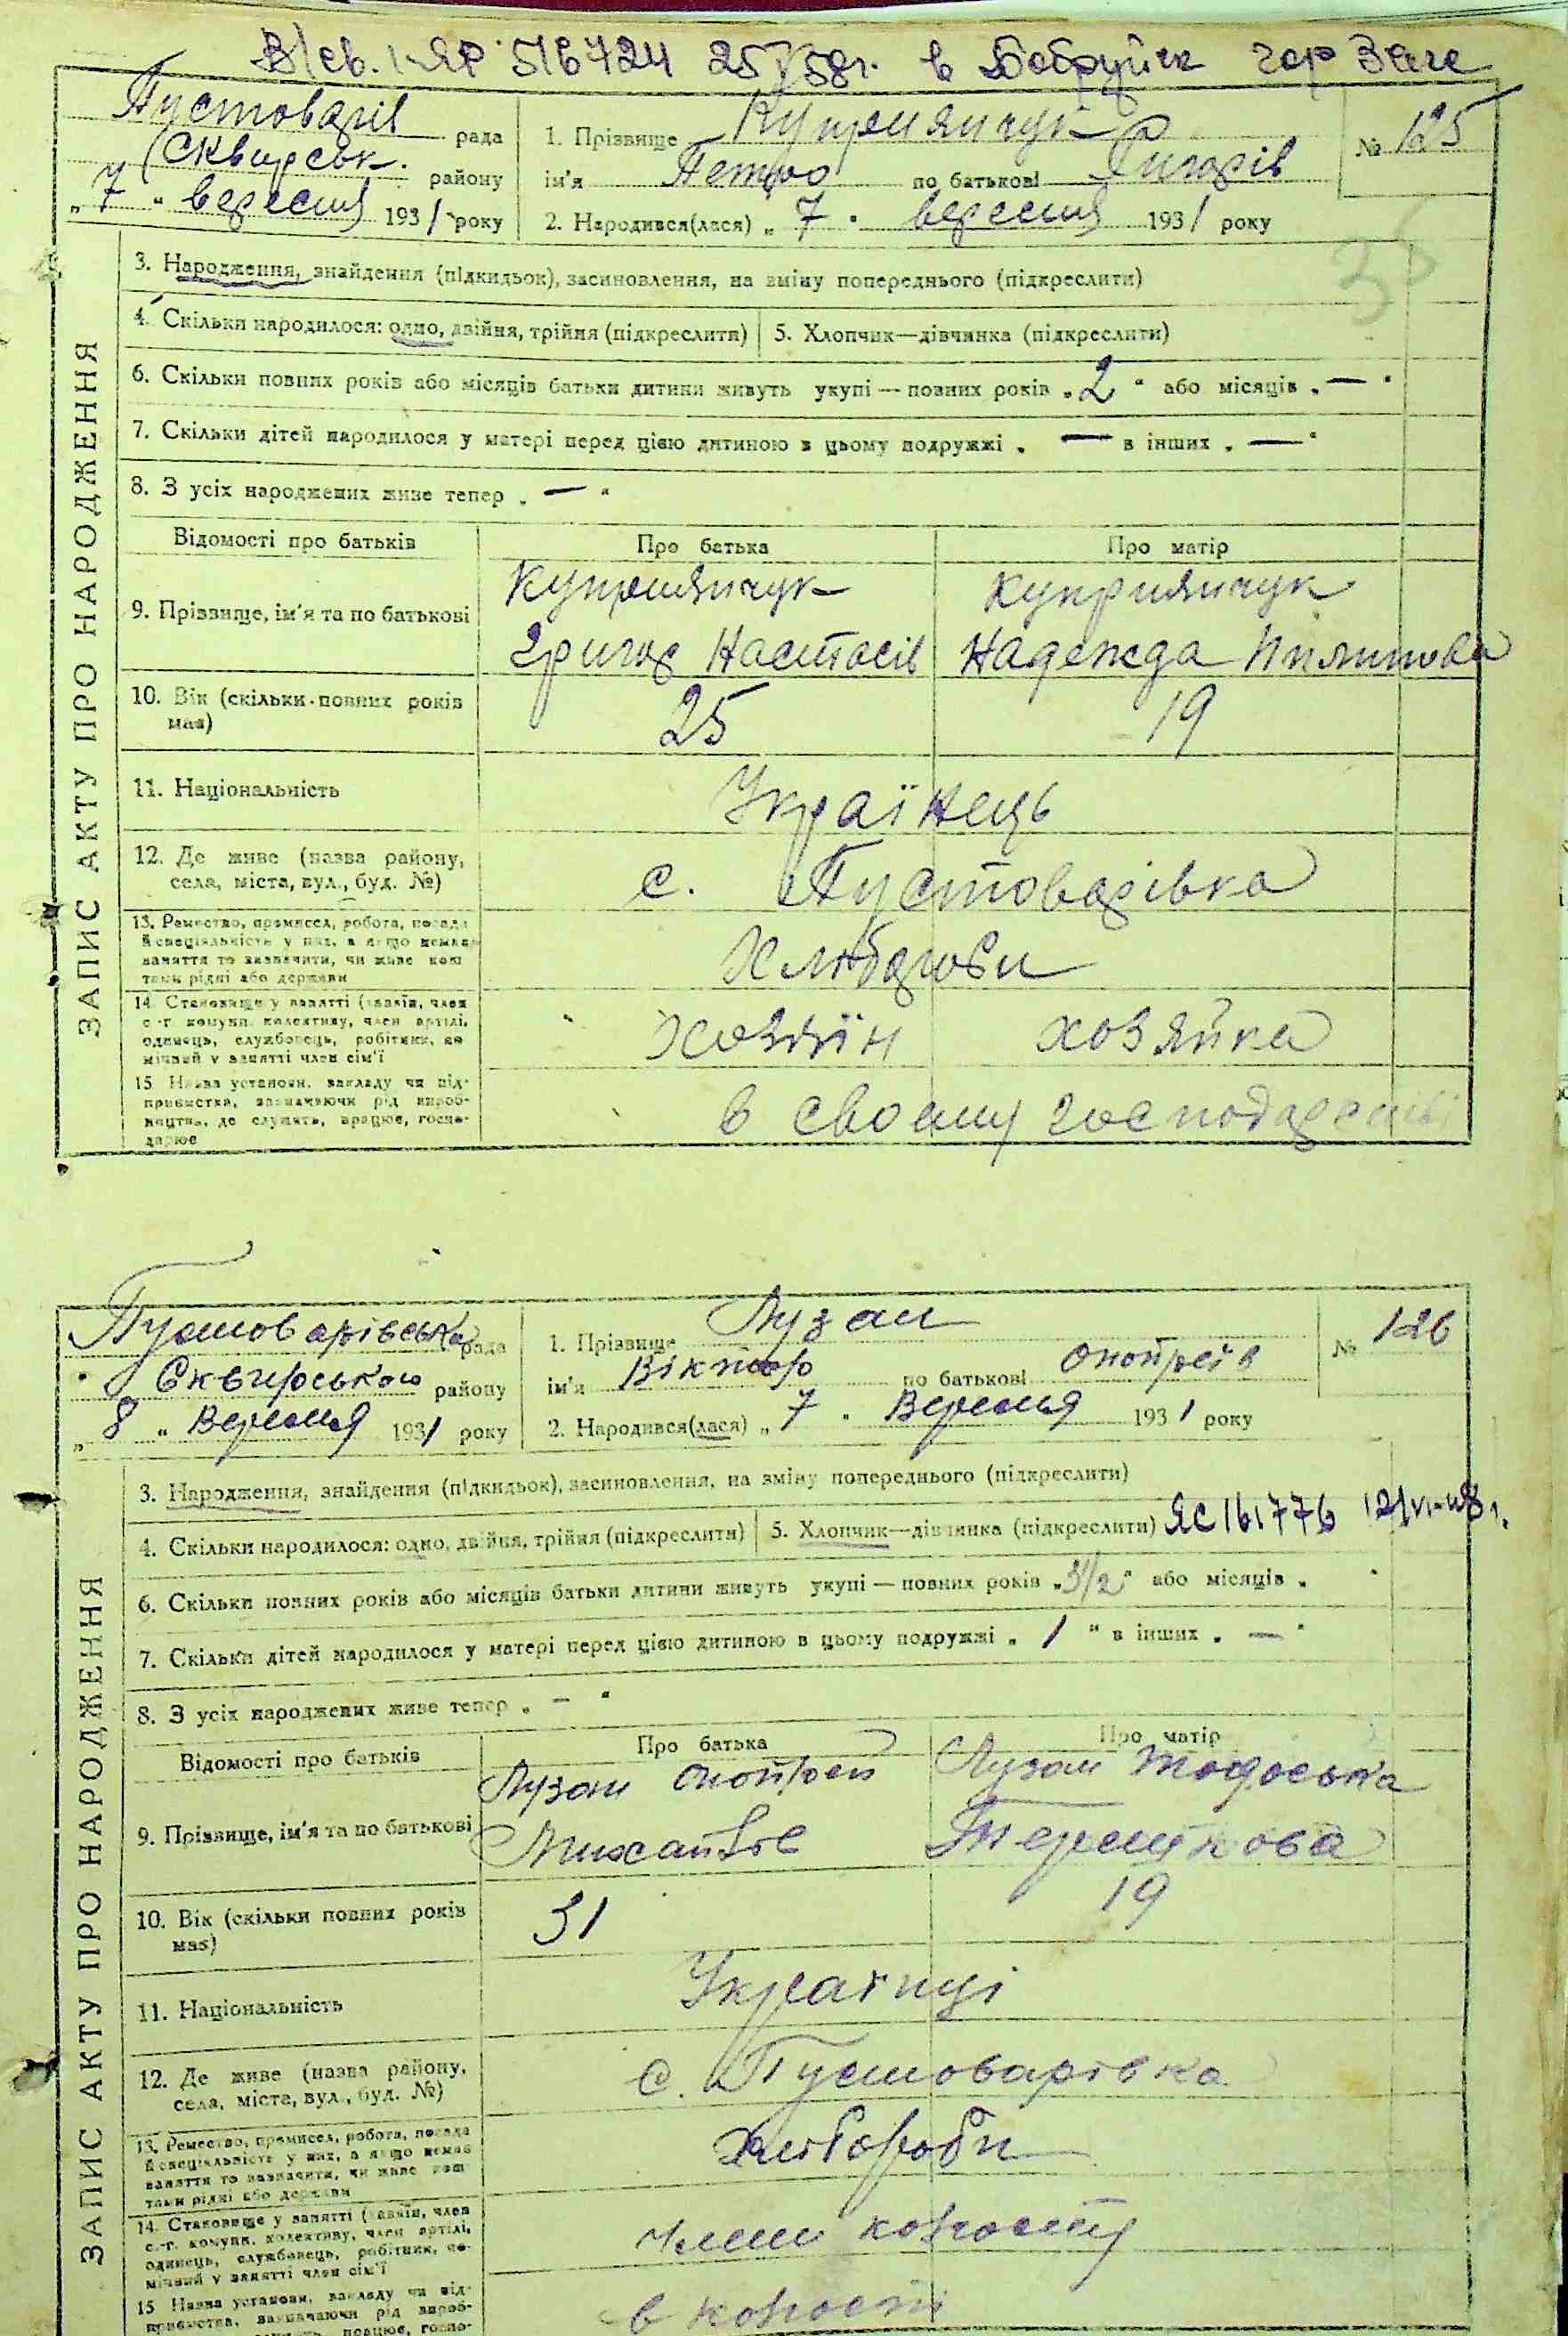 В/св. ЯР 516724 25/V 58г. в Бобруйск гор Загс
Пустоварів рада
Сквирськ. району
„7“ вересня 1931 року
1. Прізвище Куприянчук
ім'я Петро по батькові Григорів
2. Народився(лася) „7“ вересня 1931 року
№ 125
ЗАПИС АКТУ ПРО НАРОДЖЕННЯ
3. Народження, знайдення (підкидьок), засиновлення, на зміну попереднього (підкреслити)
4. Скільки народилося: одно, двійня, трійня (підкреслити) 5. Хлопчик—дівчинка (підкреслити)
6. Скільки повних років або місяців батьки дитини живуть укупі — повних років „2“ або місяців „—“
7. Скільки дітей народилося у матері перед цією дитиною в цьому подружжі „— в інших „—“
8. З усіх народжених живе тепер „—“
Відомості про батьків Про батька Про матір
9. Прізвище, ім'я та по батькові
Куприянчук Куприянчук
Григор Настасів Надежда Пилипова
10. Вік (скільки повних років має) 25 19
11. Національність Українець
12. Де живе (назва району,
села, міста, вул., буд. №) с. Пустоварівка
13. Ремество, промисел, робота, посада
й спеціяльність у них, а якщо немає
заняття то зазначити, чи живе кош
тами рідні або держави
Хлібороби
14. Становище у занятті (хазяїн, член
с.-г. комуни, колективу, член артілі,
одинець, службовець, робітник, по
мічний у занятті член сім'ї
Хозяїн хозяйка
15. Назва установи, закладу чи під-
приємства, зазначаючи рід вироб-
ництва, де служить, працює, госпо-
дарює
в своєму господарстві
Пустоварівська рада
Сквирського району
„8“ Вересня 1931 року
1. Прізвище Лузан
ім'я Віктор по батькові Онопреїв
2. Народився(лася) „7“ Вересня 1931 року
№ 126
ЗАПИС АКТУ ПРО НАРОДЖЕННЯ
3. Народження, знайдення (підкидьок), засиновлення, на зміну попереднього (підкреслити)
4. Скільки народилося: одно, двійня, трійня (підкреслити) 5. Хлопчик—дівчинка (підкреслити) ЯС 161776 12/VI-48 г.
6. Скільки повних років або місяців батьки дитини живуть укупі — повних років „3 1/2“ або місяців „ “
7. Скільки дітей народилося у матері перед цією дитиною в цьому подружжі „1“ в інших „—“
8. З усіх народжених живе тепер „—“
Відомості про батьків Про батька Про матір
9. Прізвище, ім'я та по батькові
Лузан Онопрей Лузан Тодоська
Михайлів
10. Вік (скільки повних років має) 31 19
11. Національність Українці
12. Де живе (назва району,
села, міста, вул., буд. №) с. Пустоварівка
13. Ремество, промисел, робота, посада
й спеціяльність у них, а якщо немає
заняття то зазначити, чи живе кош
тами рідні або держави
хлібороби
14. Становище у занятті (хазяїн, член
с.-г. комуни, колективу, член артілі,
одинець, службовець, робітник, по-
мічний у занятті член сім'ї
член колгоспу
15 Назва установи, закладу чи під-
приємства, зазначаючи рід вироб-
працює, госпо-
в колгоспі